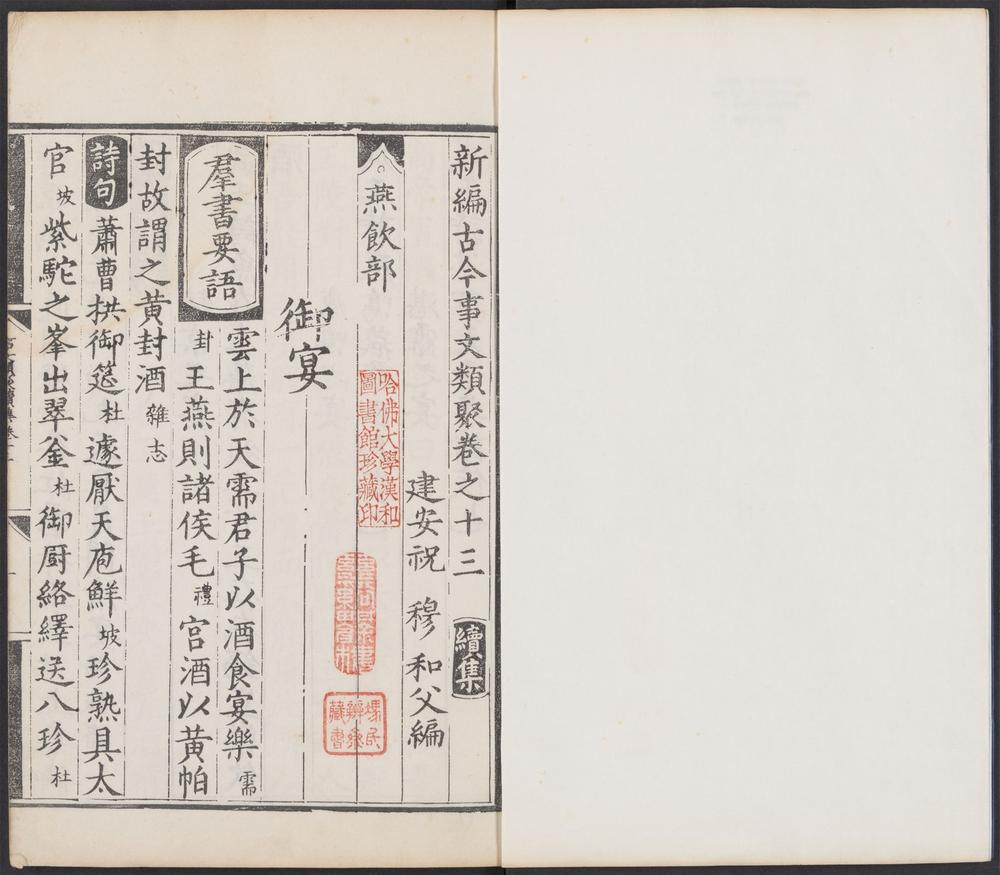 新編古今事文類聚卷之十三 續集
建安祝 穆 和父編
燕飲部
御宴
羣書要語 雲上於天需君子以酒食宴樂 需
卦 王燕則諸侯毛 禮 宮酒以黄帕
封故謂之黄封酒 雜志
詩句 蕭曹拱御筵 杜 遽厭天庖鮮 坡 珍熟具太
官 坡 紫駝之峯出翠釜 杜 御厨絡繹送八珍 杜
哈佛大學漢和
圖書館珍藏印